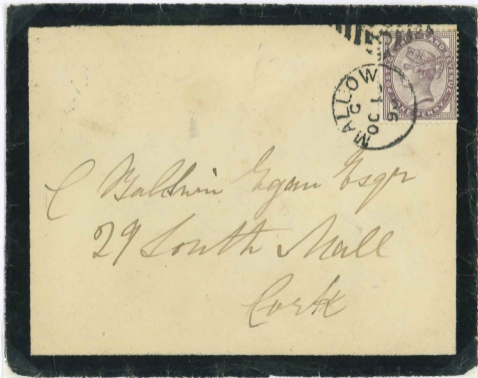 MALLOW
C
OC 1
94
C Baldwin Egan Esqr
29 South Mall
Cork